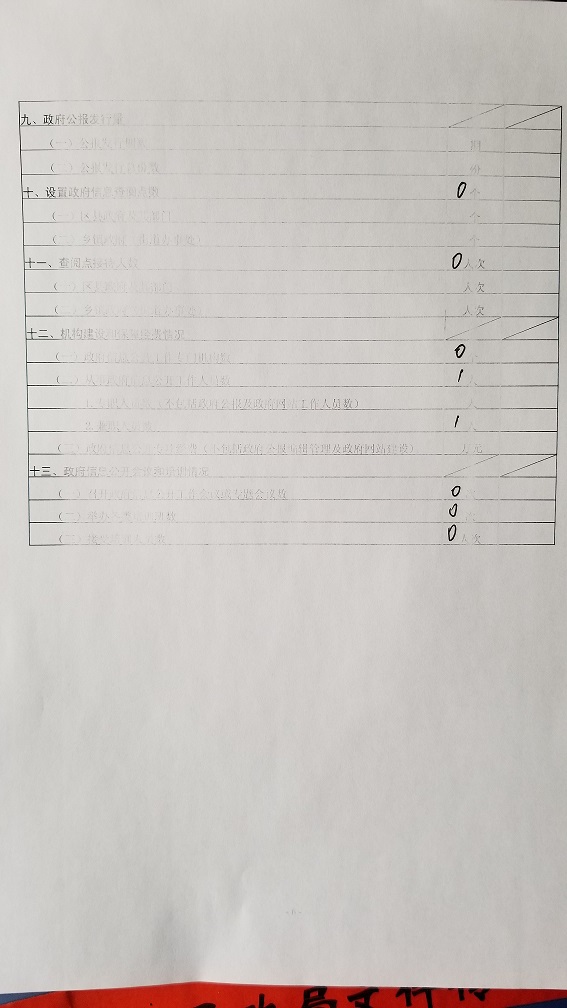 九、政府公报发行量
（一）公报发行期数 期
（二）公报发行总份数 份
十、设置政府信息查阅点数 0 个
（一） 个
（二）乡镇政府（街道办事处） 个
十一、查阅点接待人数 0 人次
（一） 人次
（二） 人次
十二、机构建设和保障经费情况
（一）政府信息公开工作专门机构数 0 个
（二）从事政府信息公开工作人员数 1 人
1.专职人员数（不包括政府公报及政府网站工作人员数） 人
2.兼职人员数 1 人
（三）政府信息公开专项经费（不包括政府公报编辑管理及政府网站建设） 万元
十三、政府信息公开会议和培训情况
（一）召开政府信息公开工作会议或专题会议数 0 次
（二）举办各类培训班数 0
（三）接受培训人员数 0 人次
- 6 -